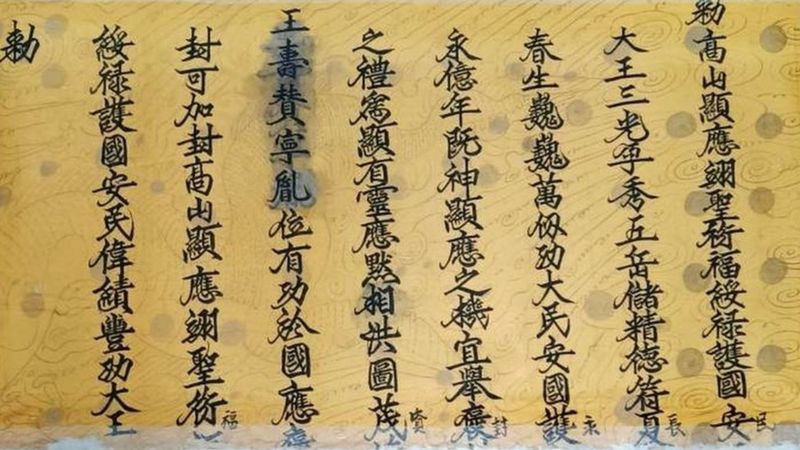 勅高山顯應翊聖衍福綏禄護國安民
大王三光孕秀五岳儲精德符夏長
春生巍巍萬仭功大民安國護
永億年既神顯應之機宜舉褒封
之禮爲顯有靈應默相洪圖茂
王壽賛寧胤位有功於國應
封可加封高山顯應翊聖衍福
綏禄護國安民偉績豊功大王
勅